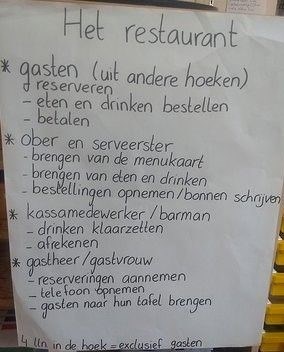 Het restaurant
* gasten (uit andere hoeken)
- reserveren
- eten en drinken bestellen
- betalen
* Ober en serveerster
- brengen van de menukaart
- brengen van eten en drinken
- bestellingen opnemen/bonnen schrijven
* kassamedewerker/barman
- drinken klaarzetten
- afrekenen
* gastheer/gastvrouw
- reserveringen aannemen
- telefoon opnemen
- gasten naar hun tafel brengen
4 lln. in de hoek = exclusief gasten